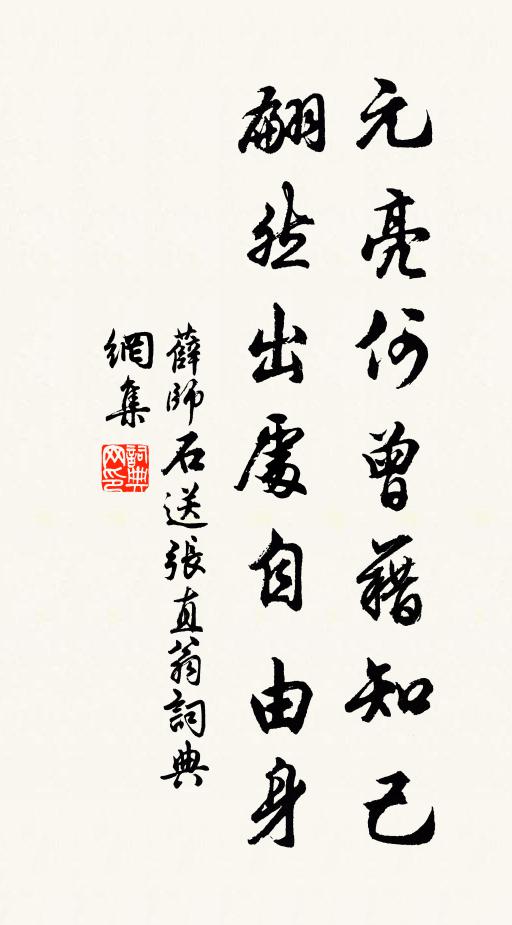 元亮何曾藉知己
翩然出處自由身
薛師石送張直翁詞典
網集
詞典
网印